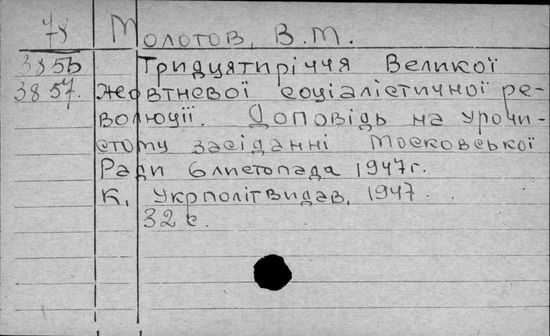 78 Молотов, В.М.
3856 Тридцятиріччя Великої
3857. Жовтневої соціалістичної ре-
волюції. Доповідь на урочи-
стому засіданні Московської
Ради 6 листопада 1947 г.
К, Укрполітвидав, 1947.
32 с.